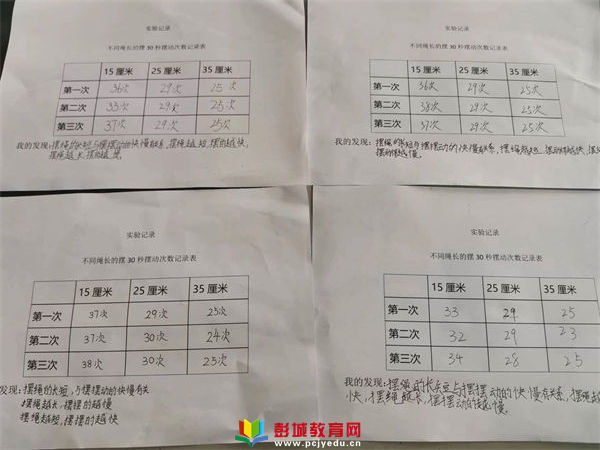 实验记录
不同绳长的摆30秒摆动次数记录表
15厘米 25厘米 35厘米
第一次 36次 29次 25次
第二次 33次 29次 25次
第三次 37次 29次 25次
我的发现:摆绳的长短与摆摆动的快慢有关系,摆绳越短,摆的越快,
摆绳越长摆的越慢。
实验记录
不同绳长的摆30秒摆动次数记录表
15厘米 25厘米 35厘米
第一次 36次 29次 25次
第二次 38次 29次 25次
第三次 37次 29次 25次
我的发现:摆绳的长短与摆摆动的快慢有关系,摆绳越短,摆动得越快,摆
摆动得越慢。
实验记录
不同绳长的摆30秒摆动次数记录表
15厘米 25厘米 35厘米
第一次 37次 29次 25次
第二次 37次 30次 24次
第三次 38次 30次 25次
发现:摆绳的长短,与摆摆动的快慢有关
摆绳越长,摆摆的越慢
摆绳越短,摆摆的越快
实验记录
不同绳长的摆30秒摆动次数记录表
15厘米 25厘米 35厘米
第一次 33 29 25
第二次 32 29 23
第三次 34 28 25
我的发现:摆绳的长短与摆摆动的快慢有关系,摆绳越
快,摆绳越长,摆摆动的越慢。
彭城教育网
www.pcjyedu.cn